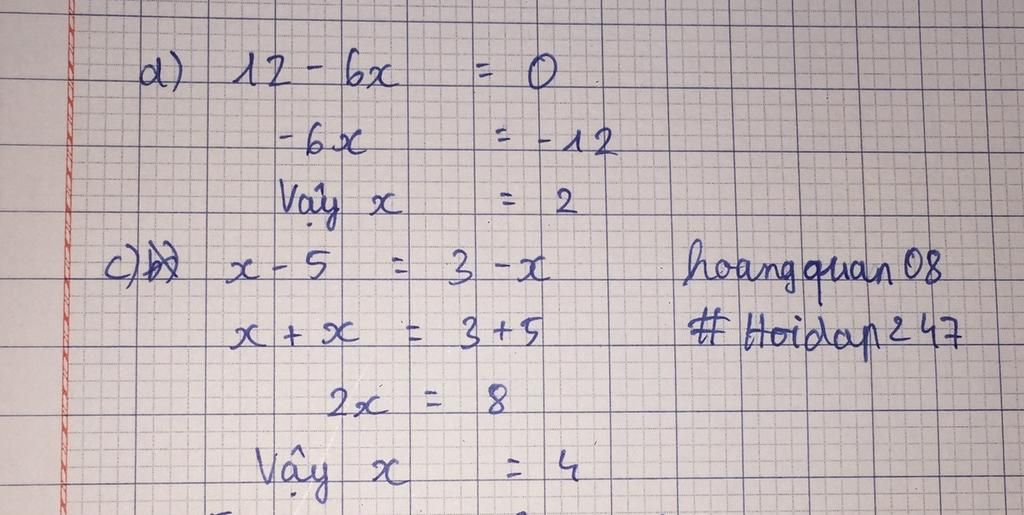 a) 12 - 6x = 0
-6x = -12
Vậy x = 2
c) x - 5 = 3 - x hoangquan08
x + x = 3 + 5 # Hoidap247
2x = 8
Vậy x = 4